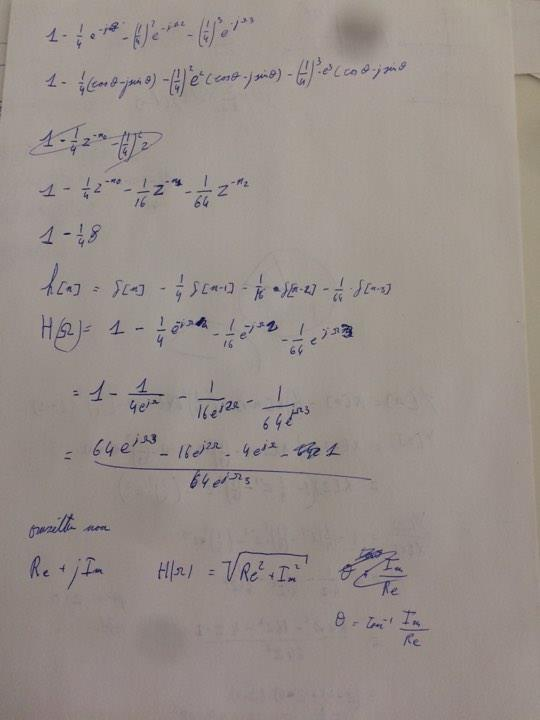 1 - 1/4 e^-jΩ - (1/4)^2 e^-jΩ2 - (1/4)^3 e^-jΩ3
1 - 1/4 (cosθ - jsinθ) - (1/4)^2 e^2 (cosθ - jsinθ) - (1/4)^3 e^3 (cosθ - jsinθ
1 - 1/4 z^-n0 - (1/4)^2 z
1 - 1/4 z^-n0 - 1/16 z^-n1 - 1/64 z^-n2
1 - 1/4 δ
h[n] = δ[n] - 1/4 δ[n-1] - 1/16 δ[n-2] - 1/64 · δ[n-3]
H(Ω) = 1 - 1/4 e^-jΩ - 1/16 e^-jΩ2 - 1/64 e^jΩ3
= 1 - 1/4e^jΩ - 1/16e^j2Ω - 1/64e^jΩ3
= 64e^jΩ3 - 16e^j2Ω - 4e^jΩ - 1 / 64e^jΩ3
Re + jIm H(Ω) = √Re^2 + Im^2 θ Im/Re
θ = tan^-1 Im/Re